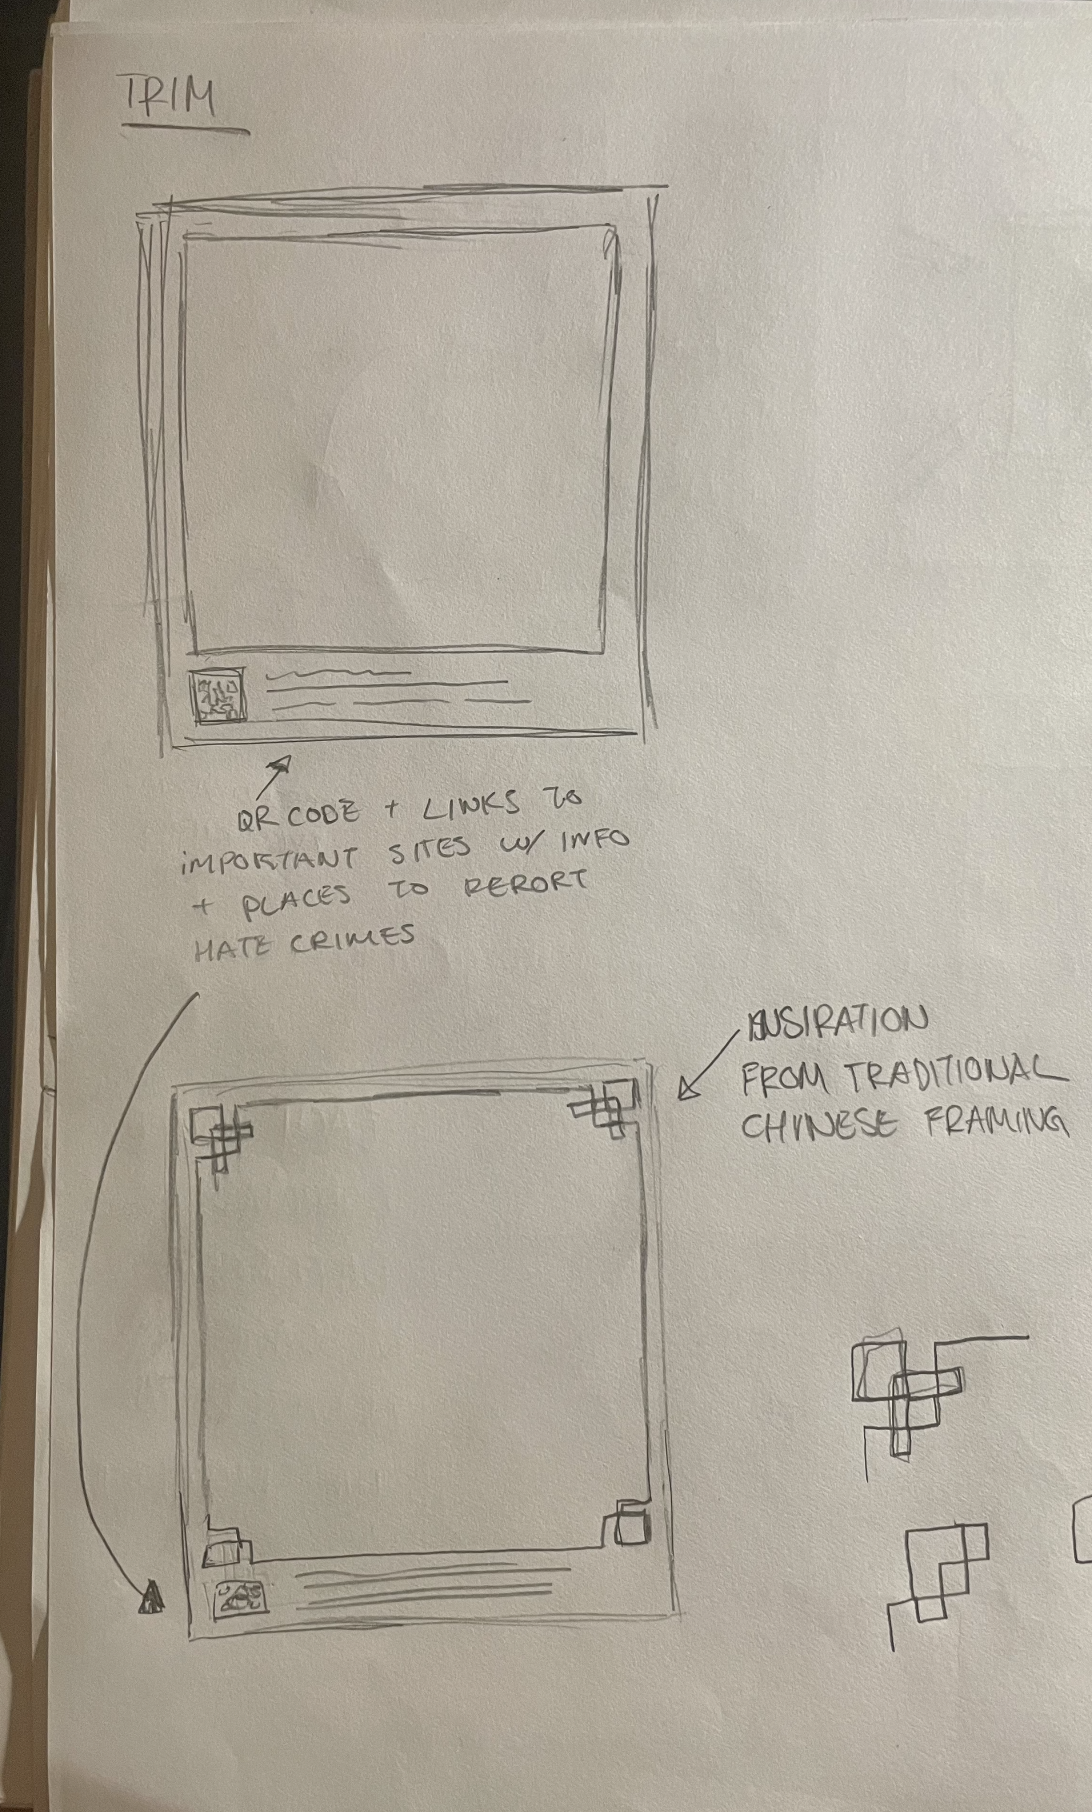 TRIM
QR CODE + LINKS TO
IMPORTANT SITES W/ INFO
+ PLACES TO RERORT
HATE CRIMES
INSIRATION
FROM TRADITIONAL
CHINESE FRAMING